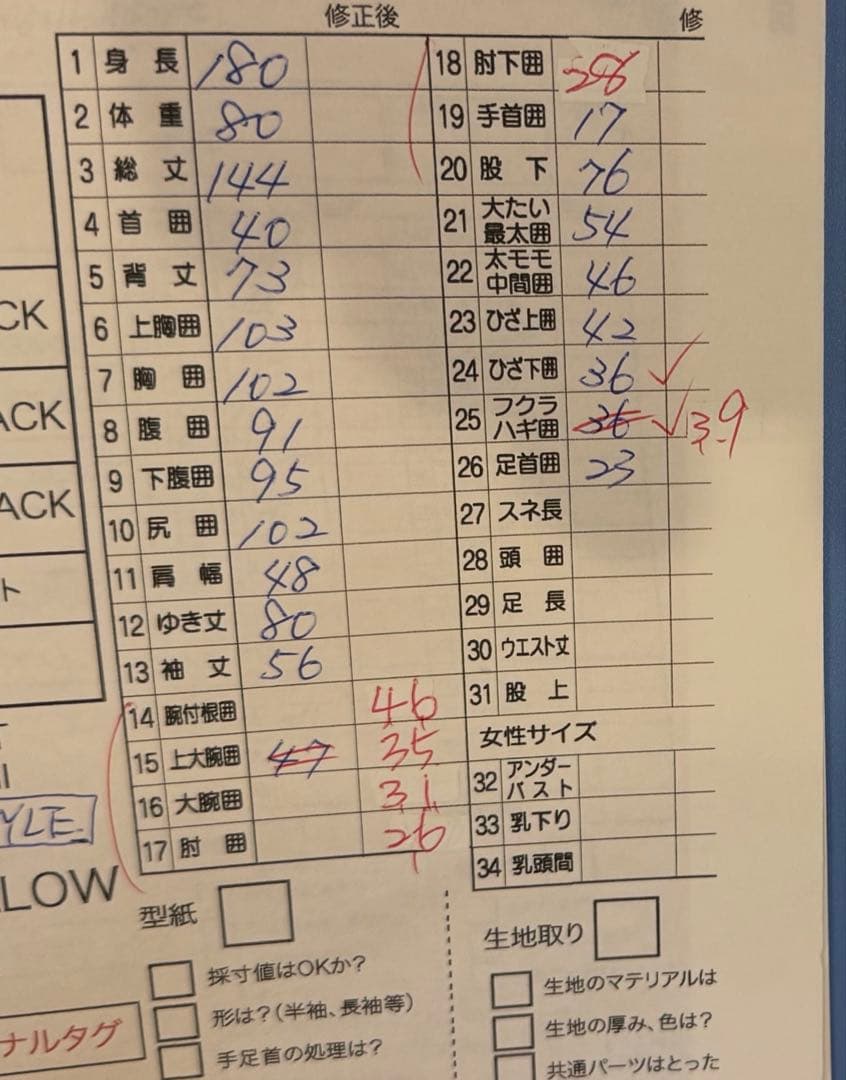 修正後
1 身長 180
2 体重 80
3 総丈 144
4 首囲 40
5 背丈 73
6 上胸囲 103
7 胸囲 102
8 腹囲 91
9 下腹囲 95
10 尻囲 102
11 肩幅 48
12 ゆき丈 80
13 袖丈 56
14 腕付根囲 46
15 上大腕囲 47 35
16 大腕囲 31
17 肘囲 26
修
18 肘下囲
19 手首囲 17
20 股下 76
21 大たい最太囲 54
22 太モモ中間囲 46
23 ひざ上囲 42
24 ひざ下囲 36 ✓
25 フクラハギ囲 36 ✓ 39
26 足首囲 23
27 スネ長
28 頭囲
29 足長
30 ウエスト丈
31 股上
女性サイズ
32 アンダーバスト
33 乳下り
34 乳頭間
CK
ACK
ACK
ト
YLE.
LOW
ナルタグ
型紙
採寸値はOKか?
形は?(半袖、長袖等)
手足首の処理は?
生地取り
生地のマテリアルは
生地の厚み、色は?
共通パーツはとった